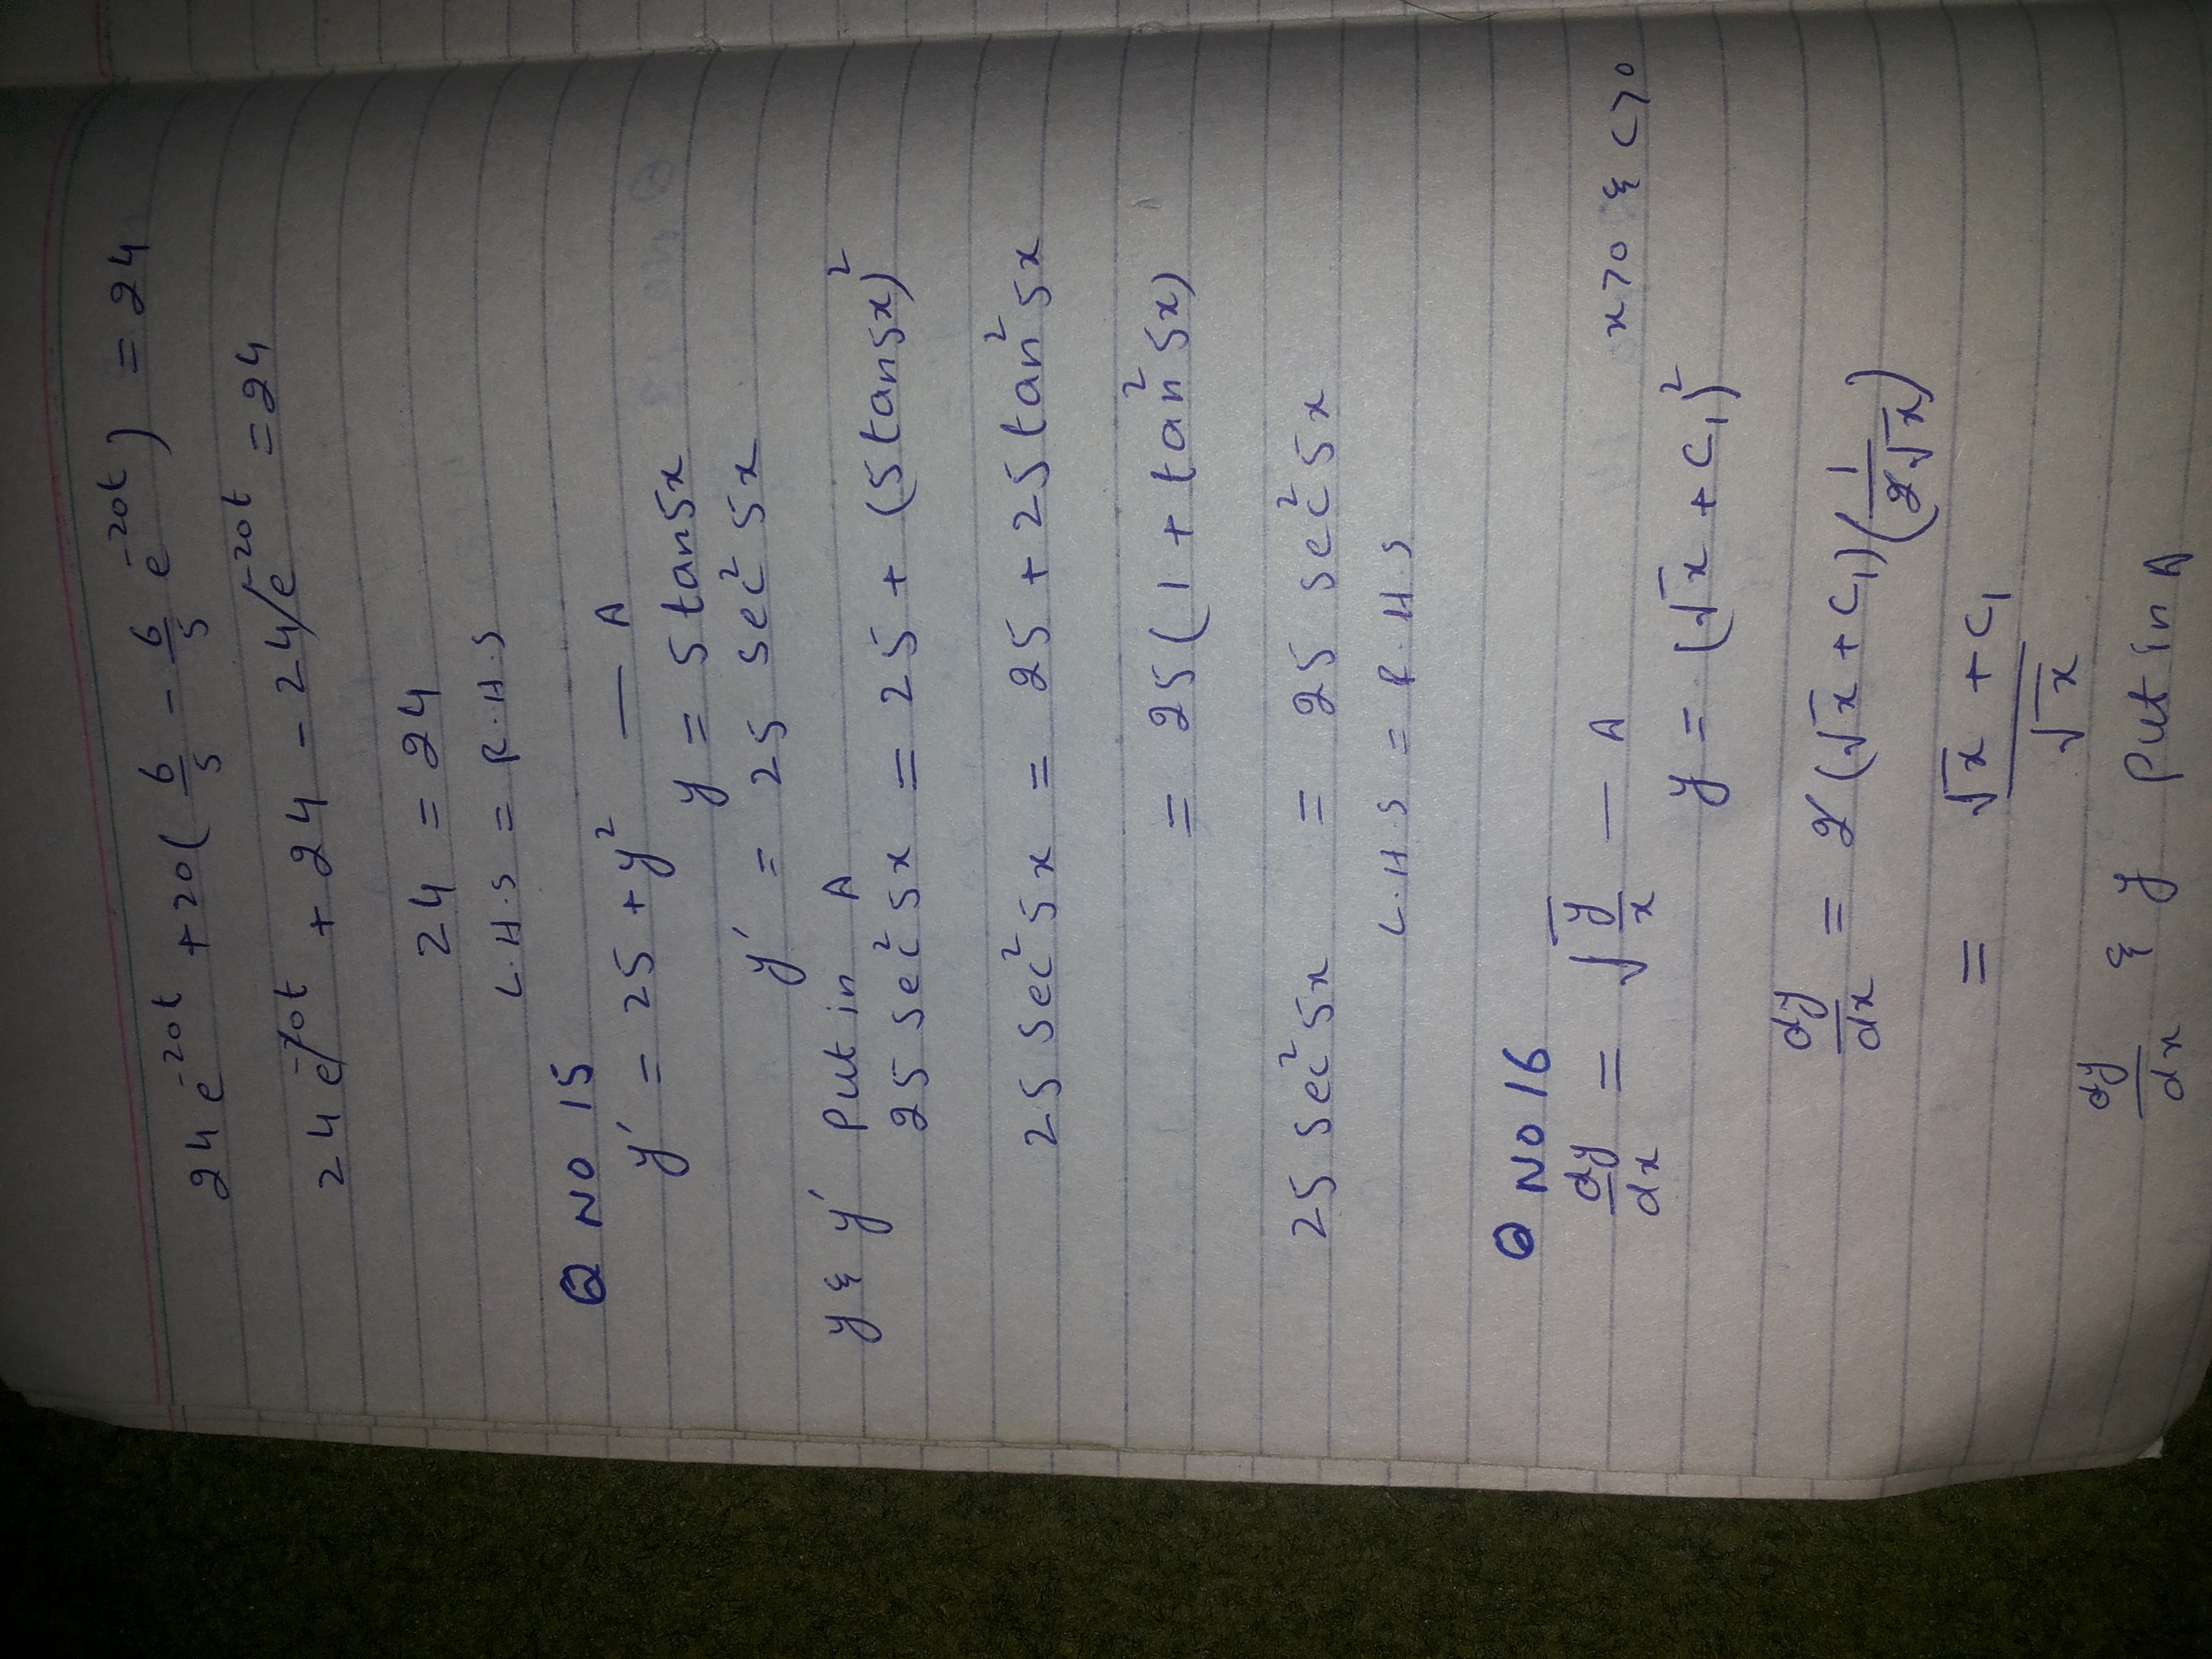 24e^{-20t} + 20( 6/5 - 6/5 e^{-20t} ) = 24
24e^{-20t} + 24 - 24e^{-20t} = 24
24 = 24
L.H.S = R.H.S
Q NO 15
y' = 25 + y² — A
y = 5 tan5x
y' = 25 sec² 5x
y & y' Put in A
25 sec² 5x = 25 + (5 tan5x)²
25 sec² 5x = 25 + 25 tan² 5x
= 25 ( 1 + tan² 5x)
25 sec² 5x = 25 sec² 5x
L.H.S = R.H.S
Q NO 16
dy/dx = √(y/x) — A x>0 & c>0
y = (√x + C₁)²
dy/dx = 2 (√x + C₁) (1/(2√x))
= (√x + C₁)/√x
dy/dx & y Put in A